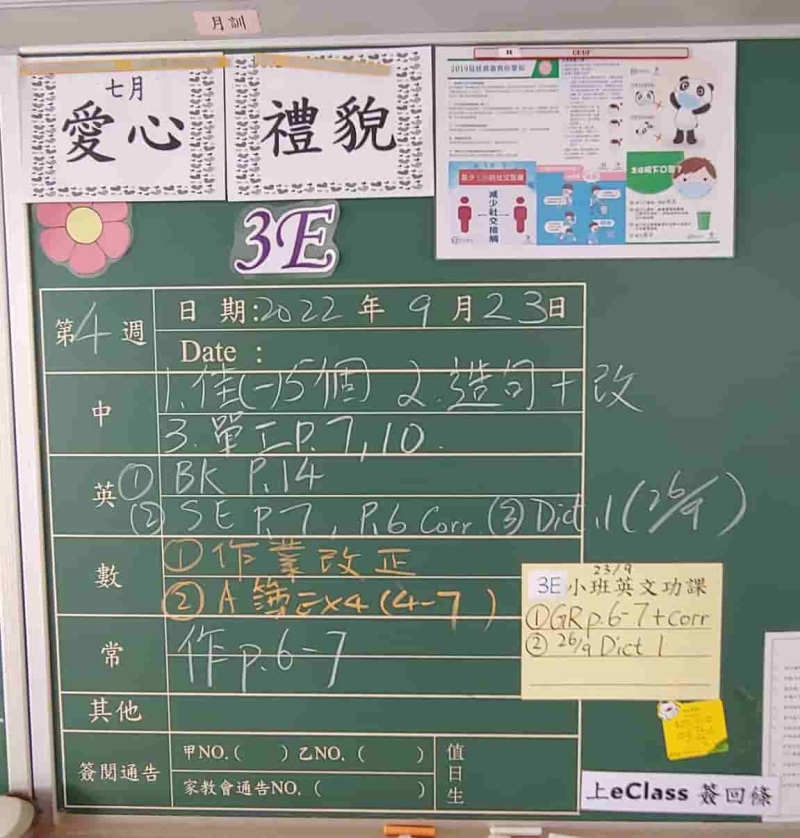 月訓
七月
愛心
禮貌
2019冠狀病毒病保單張
減少社交接觸
3E
第4週
日 期:2022 年 9 月 23 日
Date :
中
1.佳(一)5個 2.造句+改
3.單工P.7,10.
英
① BK P.14
② SE P.7, P.6 Corr. ③ Dict.1 (26/9)
數
① 作業改正
② A簿Ex4 (4-7)
23/9
3E 小班英文功課
①GR p.6-7+Corr
② 26/9 Dict 1
常
作 p.6-7
其他
簽閱通告
甲NO.( ) 乙NO.( )
家教會通告NO.( )
值日生
上eClass 簽回條